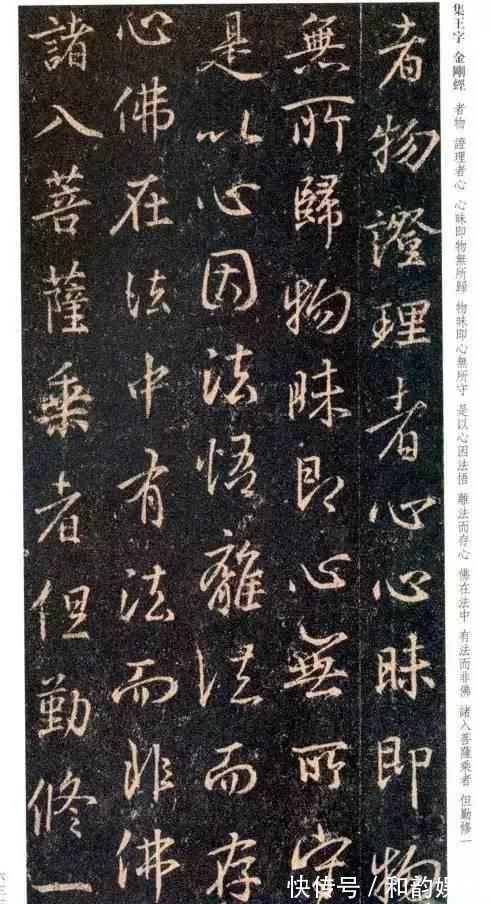 集王字 金剛經 者物 證理者心 心昧即物無所歸 物昧即心無所守 是以心因法悟 離法而存心 佛在法中 有法而非佛 諸入菩薩乘者 但勤修一
者物證理者心心昧即物
無所歸物昧即心無所守
是以心因法悟離法而存
心佛在法中有法而非佛
諸入菩薩乘者但勤修一
快传号/和韵娱